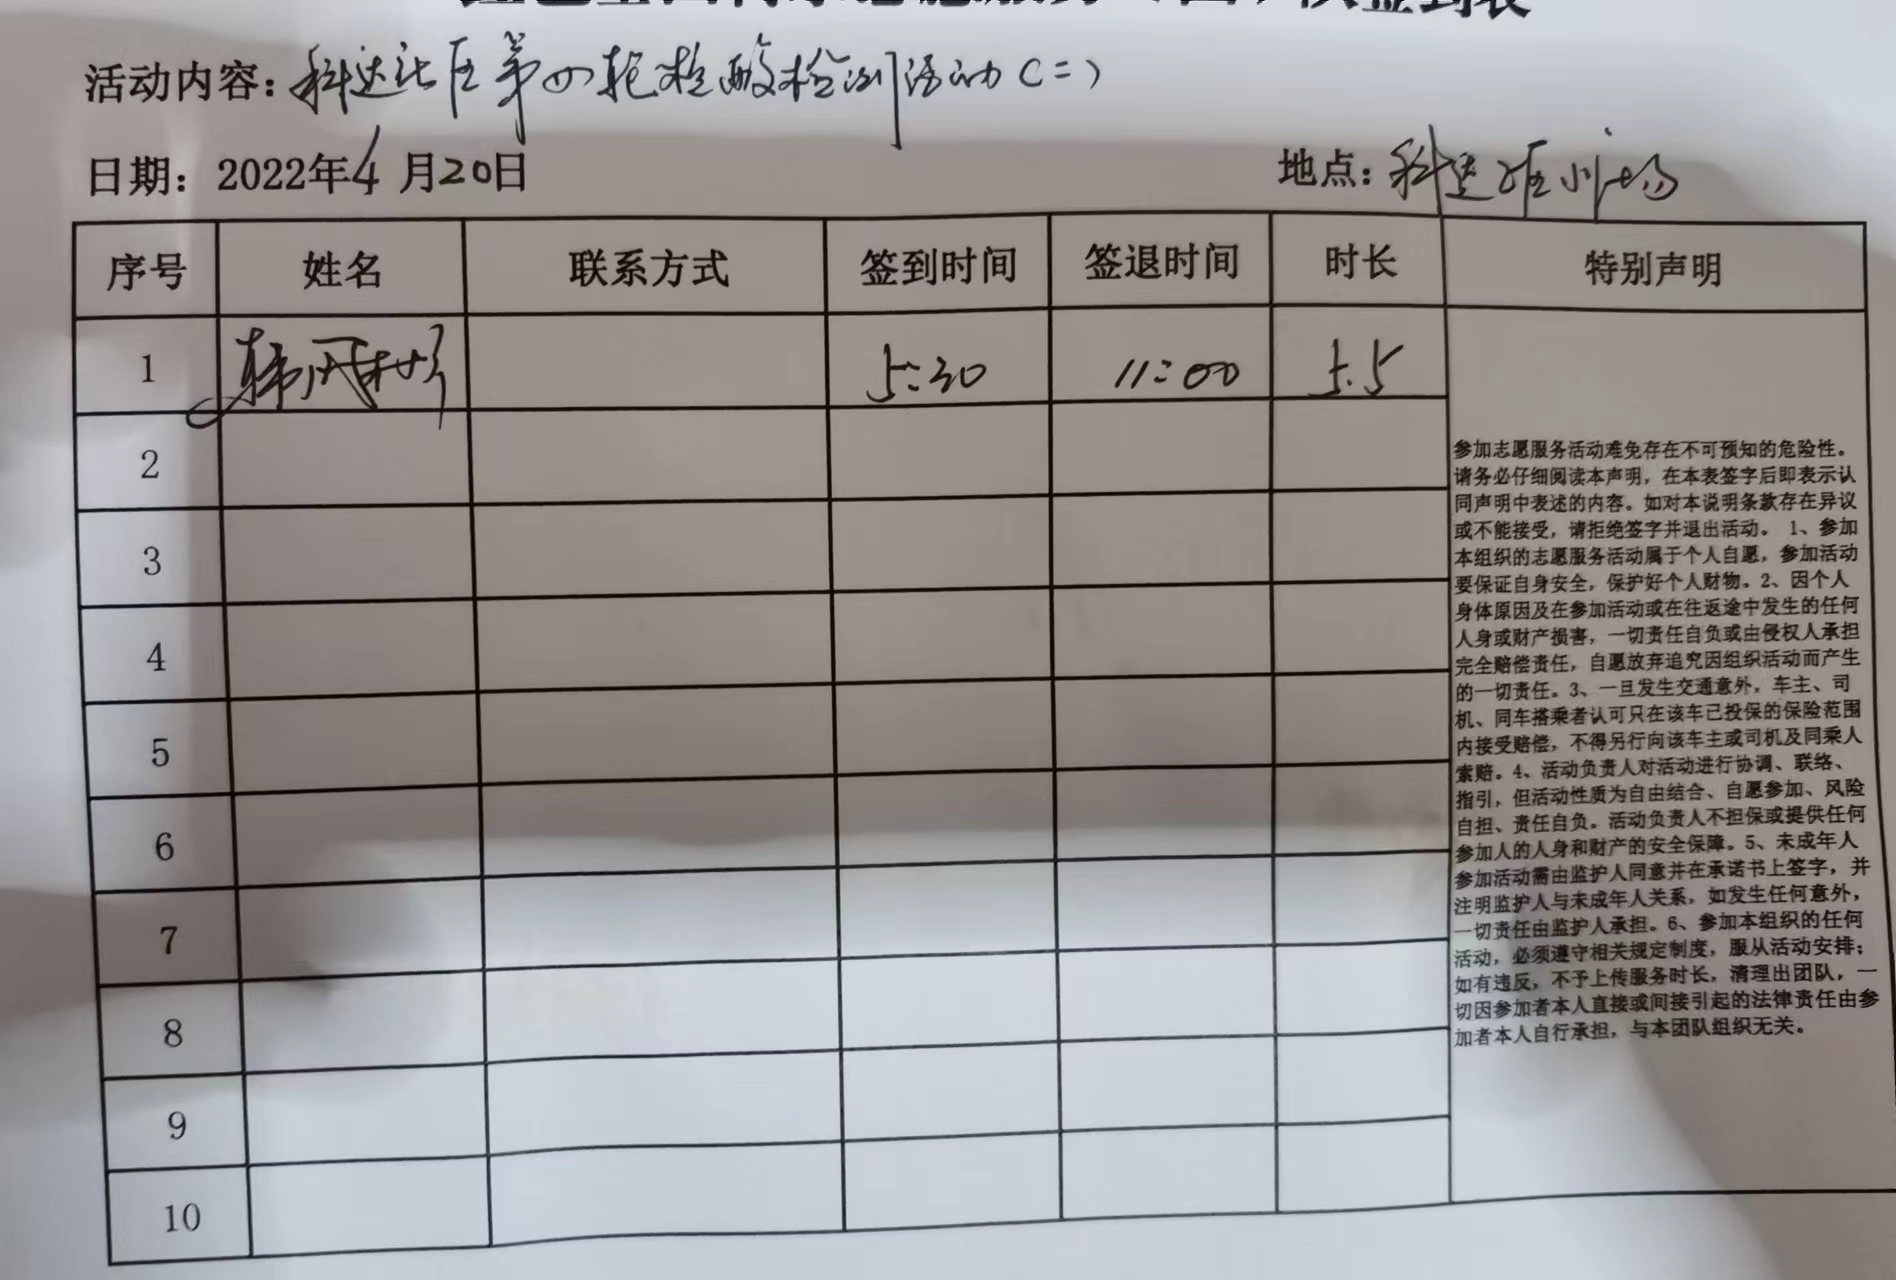 签到表
活动内容：科达社区第四轮核酸检测活动（二）
日期：2022年4月20日
地点：科达
序号 姓名 联系方式 签到时间 签退时间 时长 特别声明
1 韩 5:30 11:00 5.5
2
3
4
5
6
7
8
9
10
参加志愿服务活动难免存在不可预知的危险性。
请务必仔细阅读本声明，在本表签字后即表示认
同声明中表述的内容。如对本说明条款存在异议
或不能接受，请拒绝签字并退出活动。 1、参加
本组织的志愿服务活动属于个人自愿，参加活动
要保证自身安全，保护好个人财物。2、因个人
身体原因及在参加活动或在往返途中发生的任何
人身或财产损害，一切责任自负或由侵权人承担
完全赔偿责任，自愿放弃追究因组织活动而产生
的一切责任。3、一旦发生交通意外，车主、司
机、同车搭乘者认可只在该车已投保的保险范围
内接受赔偿，不得另行向该车主或司机及同乘人
索赔。4、活动负责人对活动进行协调、联络、
指引，但活动性质为自由结合、自愿参加、风险
自担、责任自负。活动负责人不担保或提供任何
参加人的人身和财产的安全保障。5、未成年人
参加活动需由监护人同意并在承诺书上签字，并
注明监护人与未成年人关系，如发生任何意外，
一切责任由监护人承担。6、参加本组织的任何
活动，必须遵守相关规定制度，服从活动安排；
如有违反，不予上传服务时长，清理出团队，一
切因参加者本人直接或间接引起的法律责任由参
加者本人自行承担，与本团队组织无关。